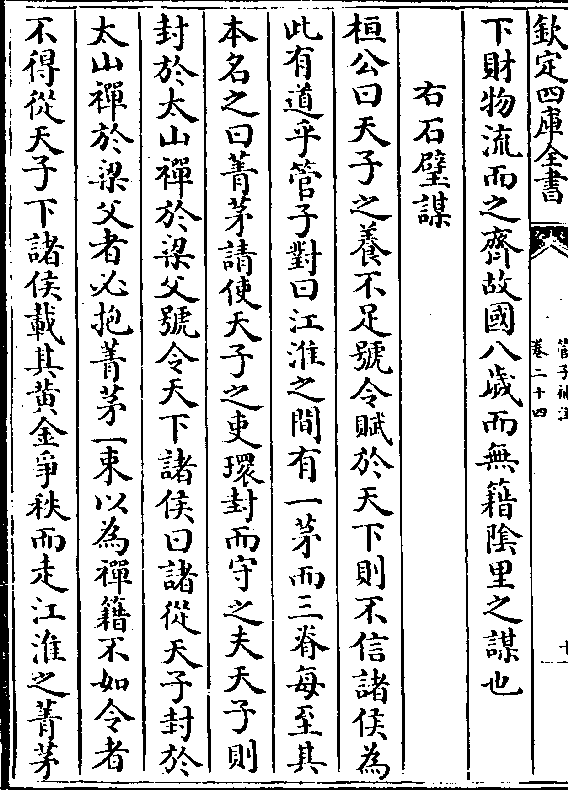 欽定四庫全書
管子補注
卷二十四
十一
下財物流而之齊故國八歲而無籍陰里之謀也
右石璧謀
桓公曰天子之養不足號令賦於天下則不信諸侯為
此有道乎管子對曰江淮之間有一茅而三脊毎至其
本名之曰菁茅請使天子之吏環封而守之夫天子則
封於太山禪於梁父號令天下諸侯曰諸從天子封於
太山禪於梁父者必抱菁茅一束以為禪籍不如令者
不得從天子下諸侯載其黄金爭秩而走江淮之菁茅